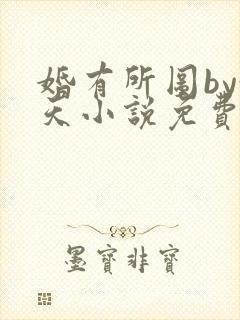 婚有所图by
天小说免费
墨寶非寶